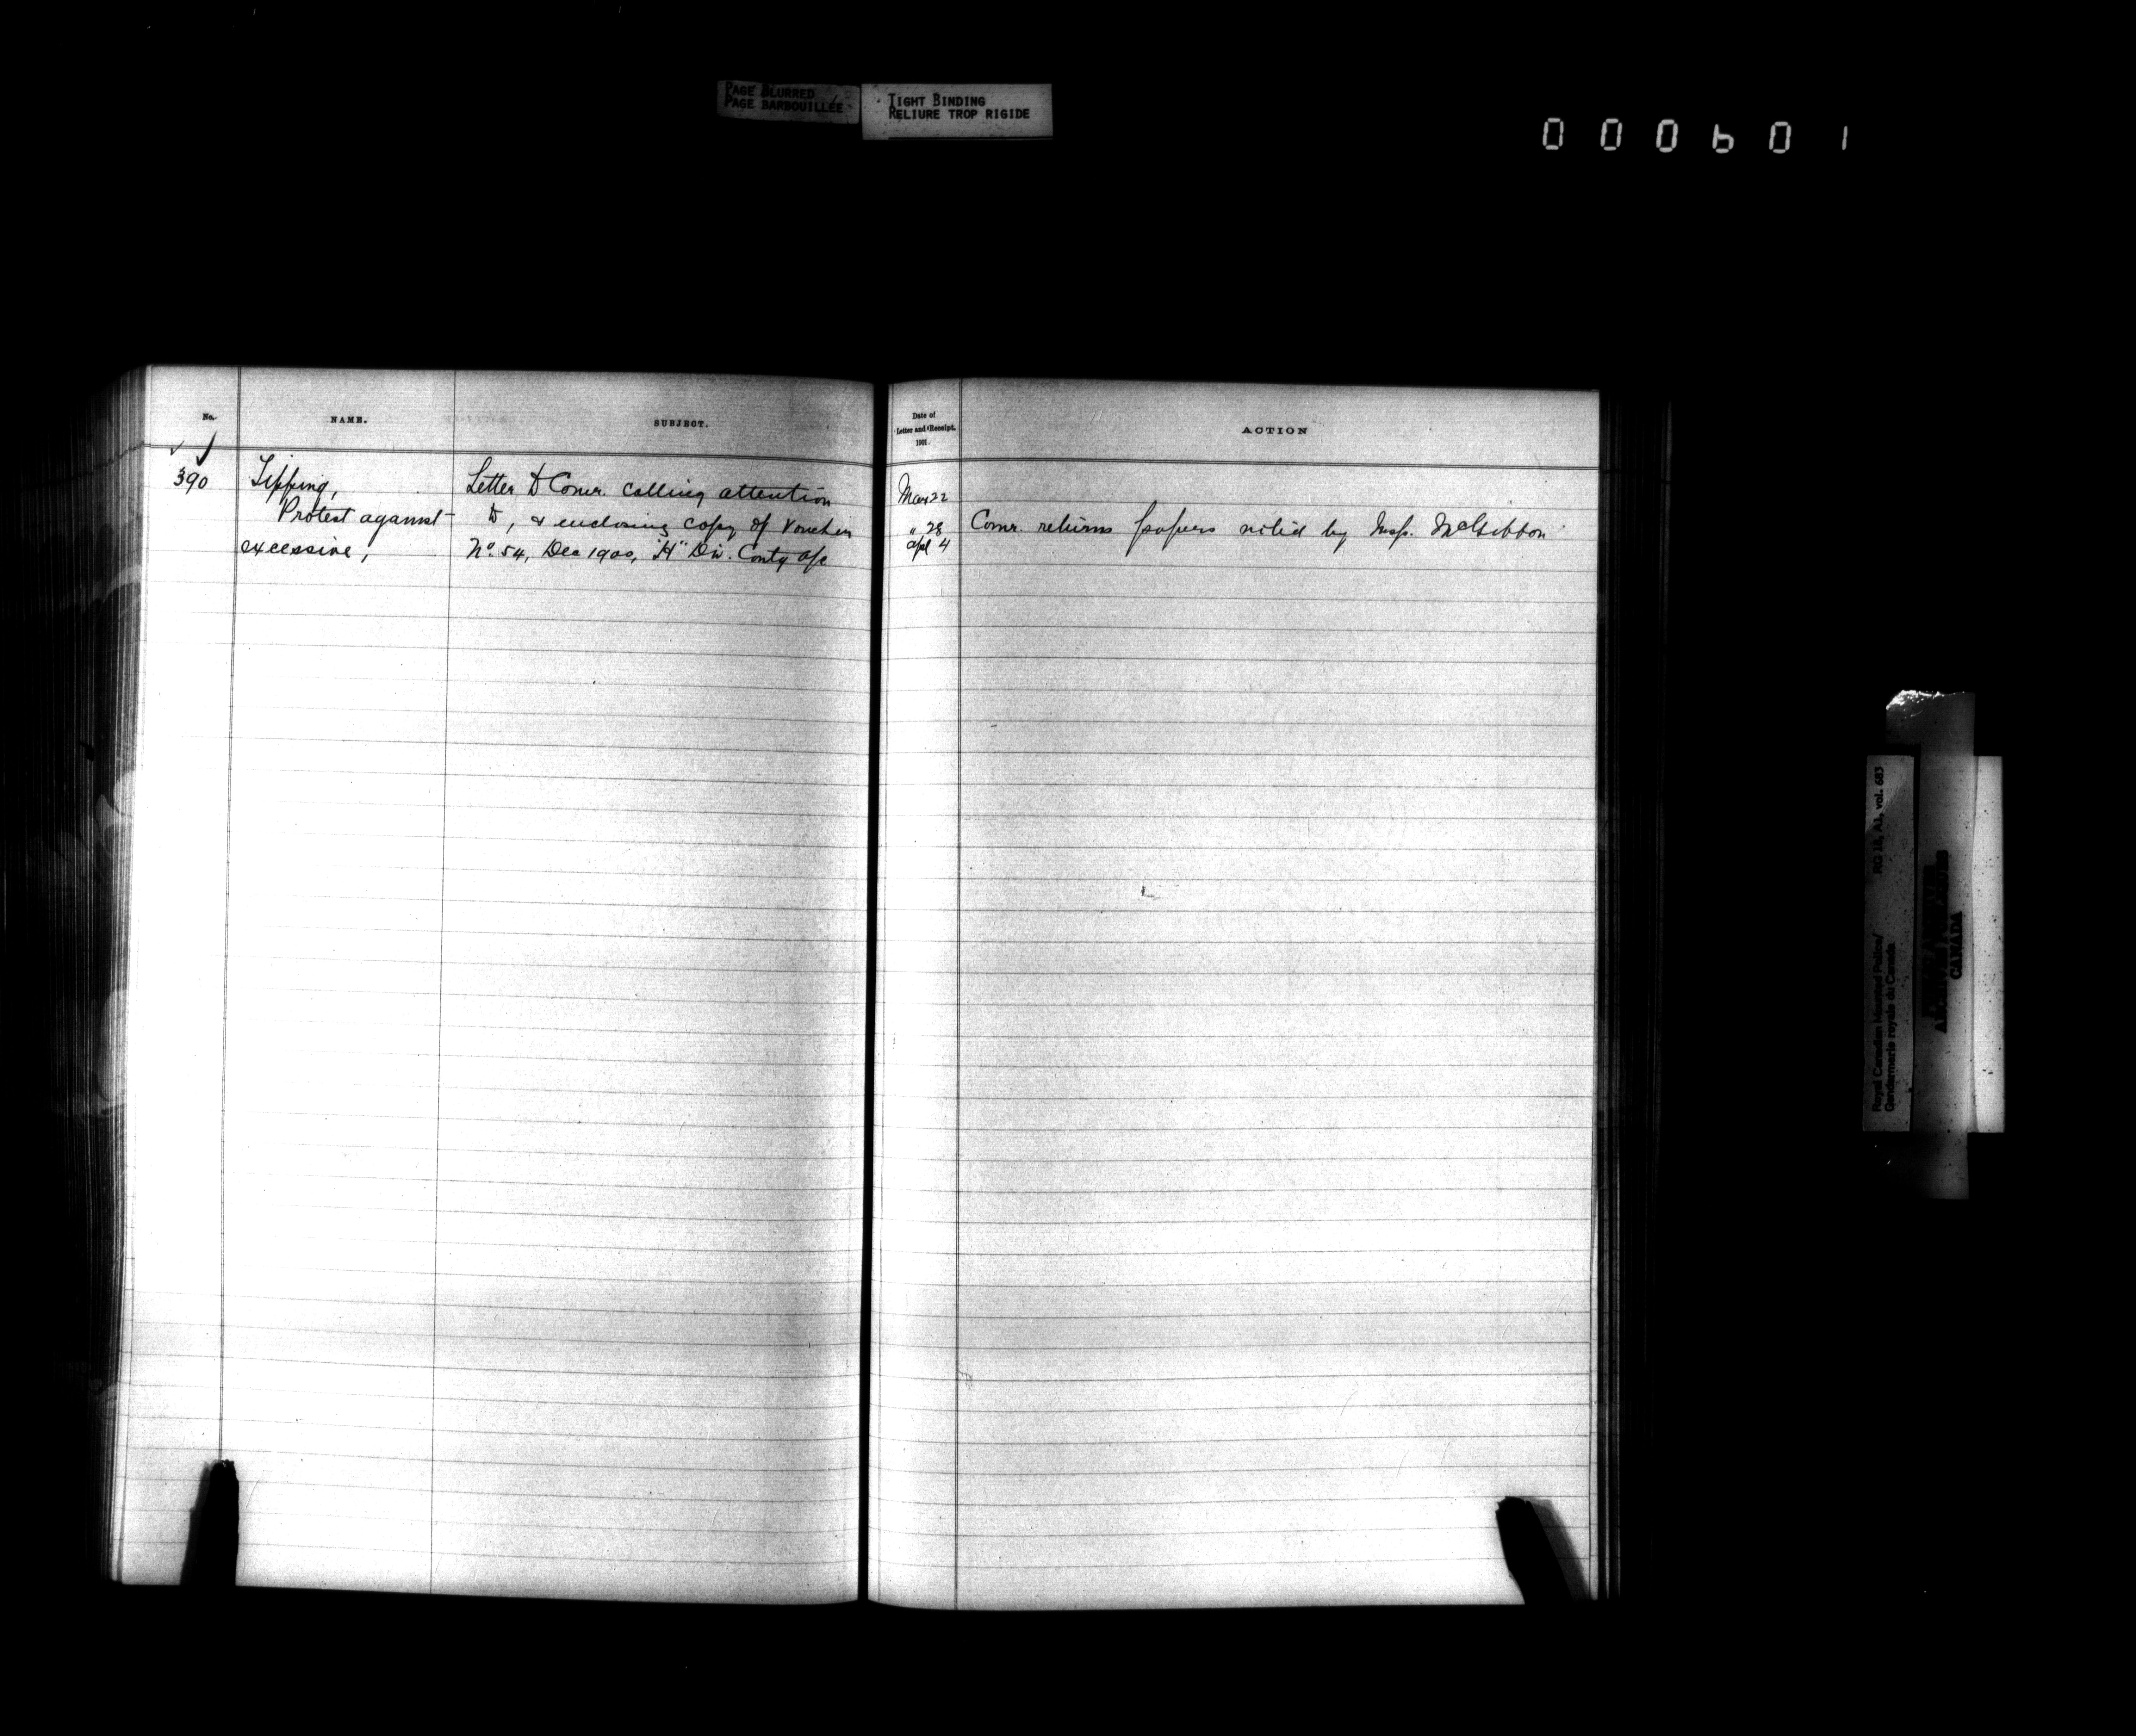 PAGE BLURRED
PAGE BARBOUILLÉE
TIGHT BINDING
RELIURE TROP RIGIDE
000601
No.
NAME.
SUBJECT.
Date of
Letter and Receipt.
1901.
ACTION
390
Tipping,
Protest against
excessive,
Letter to Comr. calling attention
to, & enclosing copy of voucher
No. 54, Dec 1900, "H" Div. Contg a/c
Mar 22
" 28
Apl 4
Comr. returns papers noted by Insp. McGibbon
Royal Canadian Mounted Police/
Gendarmerie royale du Canada
RG 18, A1, vol. 683
CANADA